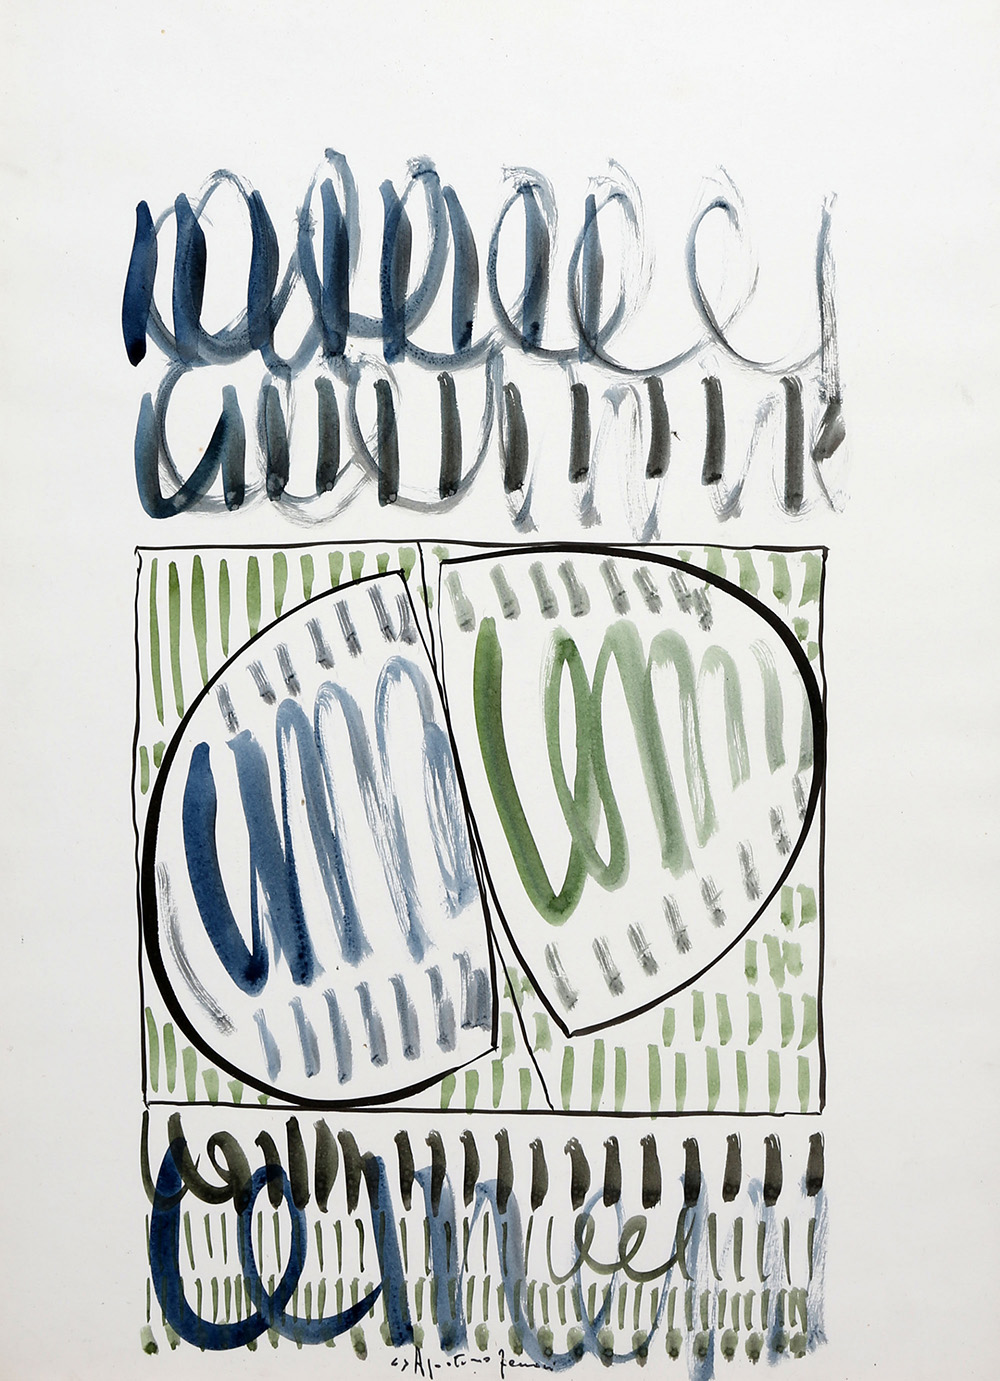 63 Agostino Ferrari